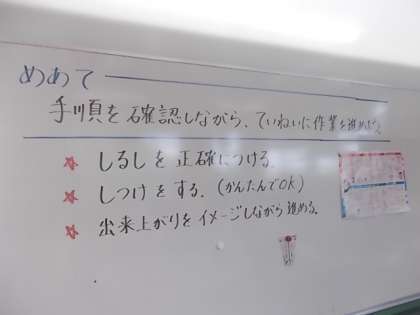 めあて
手順を確認しながら、ていねいに作業を進めよう。
★ しるしを正確につける。
★ しつけをする。(かんたんでOK)
★ 出来上がりをイメージしながら進める。